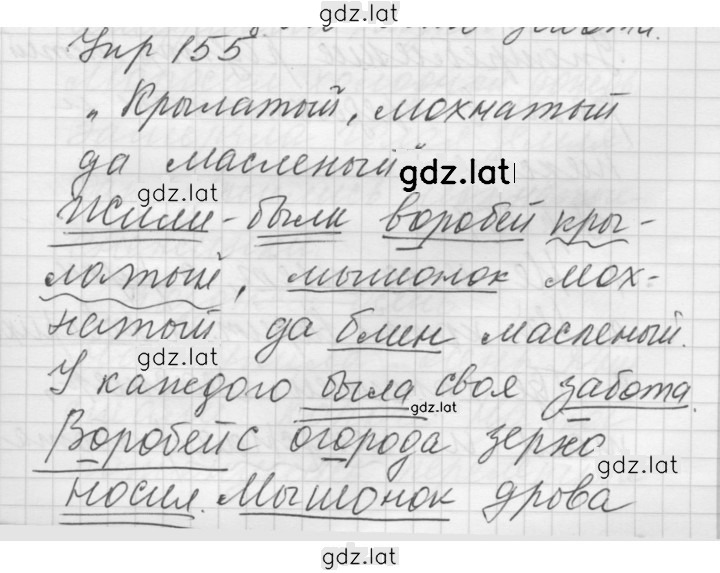 gdz.lat
Упр 155
„Крылатый, мохнатый
да масленый
gdz.lat
gdz.lat
Жили-были воробей кры-
латый, мышонок мох-
натый да блин масленый.
gdz.lat
У каждого была своя забота.
gdz.lat
Воробей с огорода зерно
gdz.lat
носил. Мышонок дрова
gdz.lat